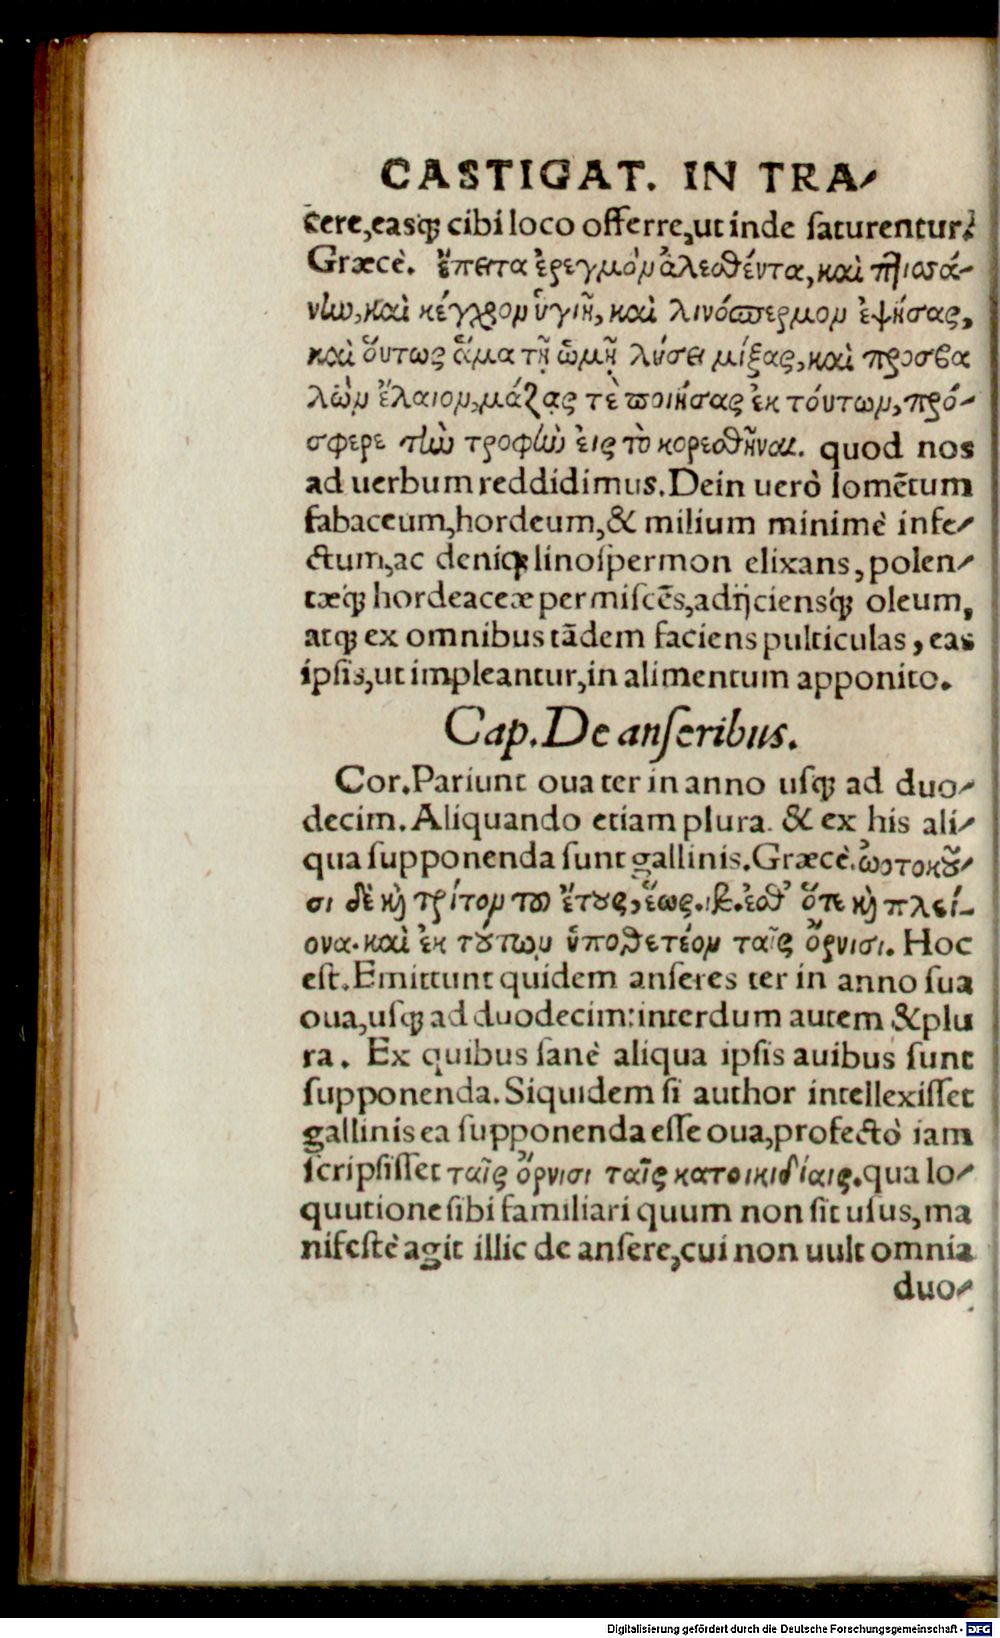 CASTIGAT. IN TRA-
cere, easq; cibi loco offerre, ut inde saturentur.
Græcè. ἔπειτα ἐρεγμὸν ἀλεσθέντα, καὶ πτισσά-
νίω, καὶ κέγχρον ὑγιῆ, καὶ λινόσπερμον ἑψήσας,
καὶ ὅυτως ἅμα τῇ ὠμῇ λύσει μίξας, καὶ προσβα
λὼν ἔλαιον, μάζας τὲ ποιήσας ἐκ τόυτων, πρό-
σφερε τὴν τροφὴν ἐις τὸ κορεσθῆναι. quod nos
ad uerbum reddidimus. Dein uerò lomẽtum
fabaceum, hordeum, & milium minimè infe-
ctum, ac deniq; linospermon elixans, polen-
tæq́; hordeaceæ permiscẽs, adijciensq́; oleum,
atq; ex omnibus tãdem faciens pulticulas, eas
ipsis, ut impleantur, in alimentum apponito.
Cap. De anseribus.
Cor. Pariunt oua ter in anno usq; ad duo-
decim. Aliquando etiam plura. & ex his ali-
qua supponenda sunt gallinis. Græcè. ὠοτοκοῦ-
σι δὲ καὶ τρίτον τοῦ ἔτους, ἕως. ιβ. ἔσθ᾽ ὅτε καὶ πλεί-
ονα. καὶ ἐκ τούτων ὑποθετέον ταῖς ὄρνισι. Hoc
est. Emittunt quidem anseres ter in anno sua
oua, usq; ad duodecim: interdum autem & plu
ra. Ex quibus sanè aliqua ipsis auibus sunt
supponenda. Siquidem si author intellexisset
gallinis ea supponenda esse oua, profectò iam
scripsisset ταῖς ὄρνισι ταῖς κατοικιδίαις. qua lo-
quutione sibi familiari quum non sit usus, ma
nifestè agit illic de ansere, cui non uult omnia
duo-
Digitalisierung gefördert durch die Deutsche Forschungsgemeinschaft - DFG